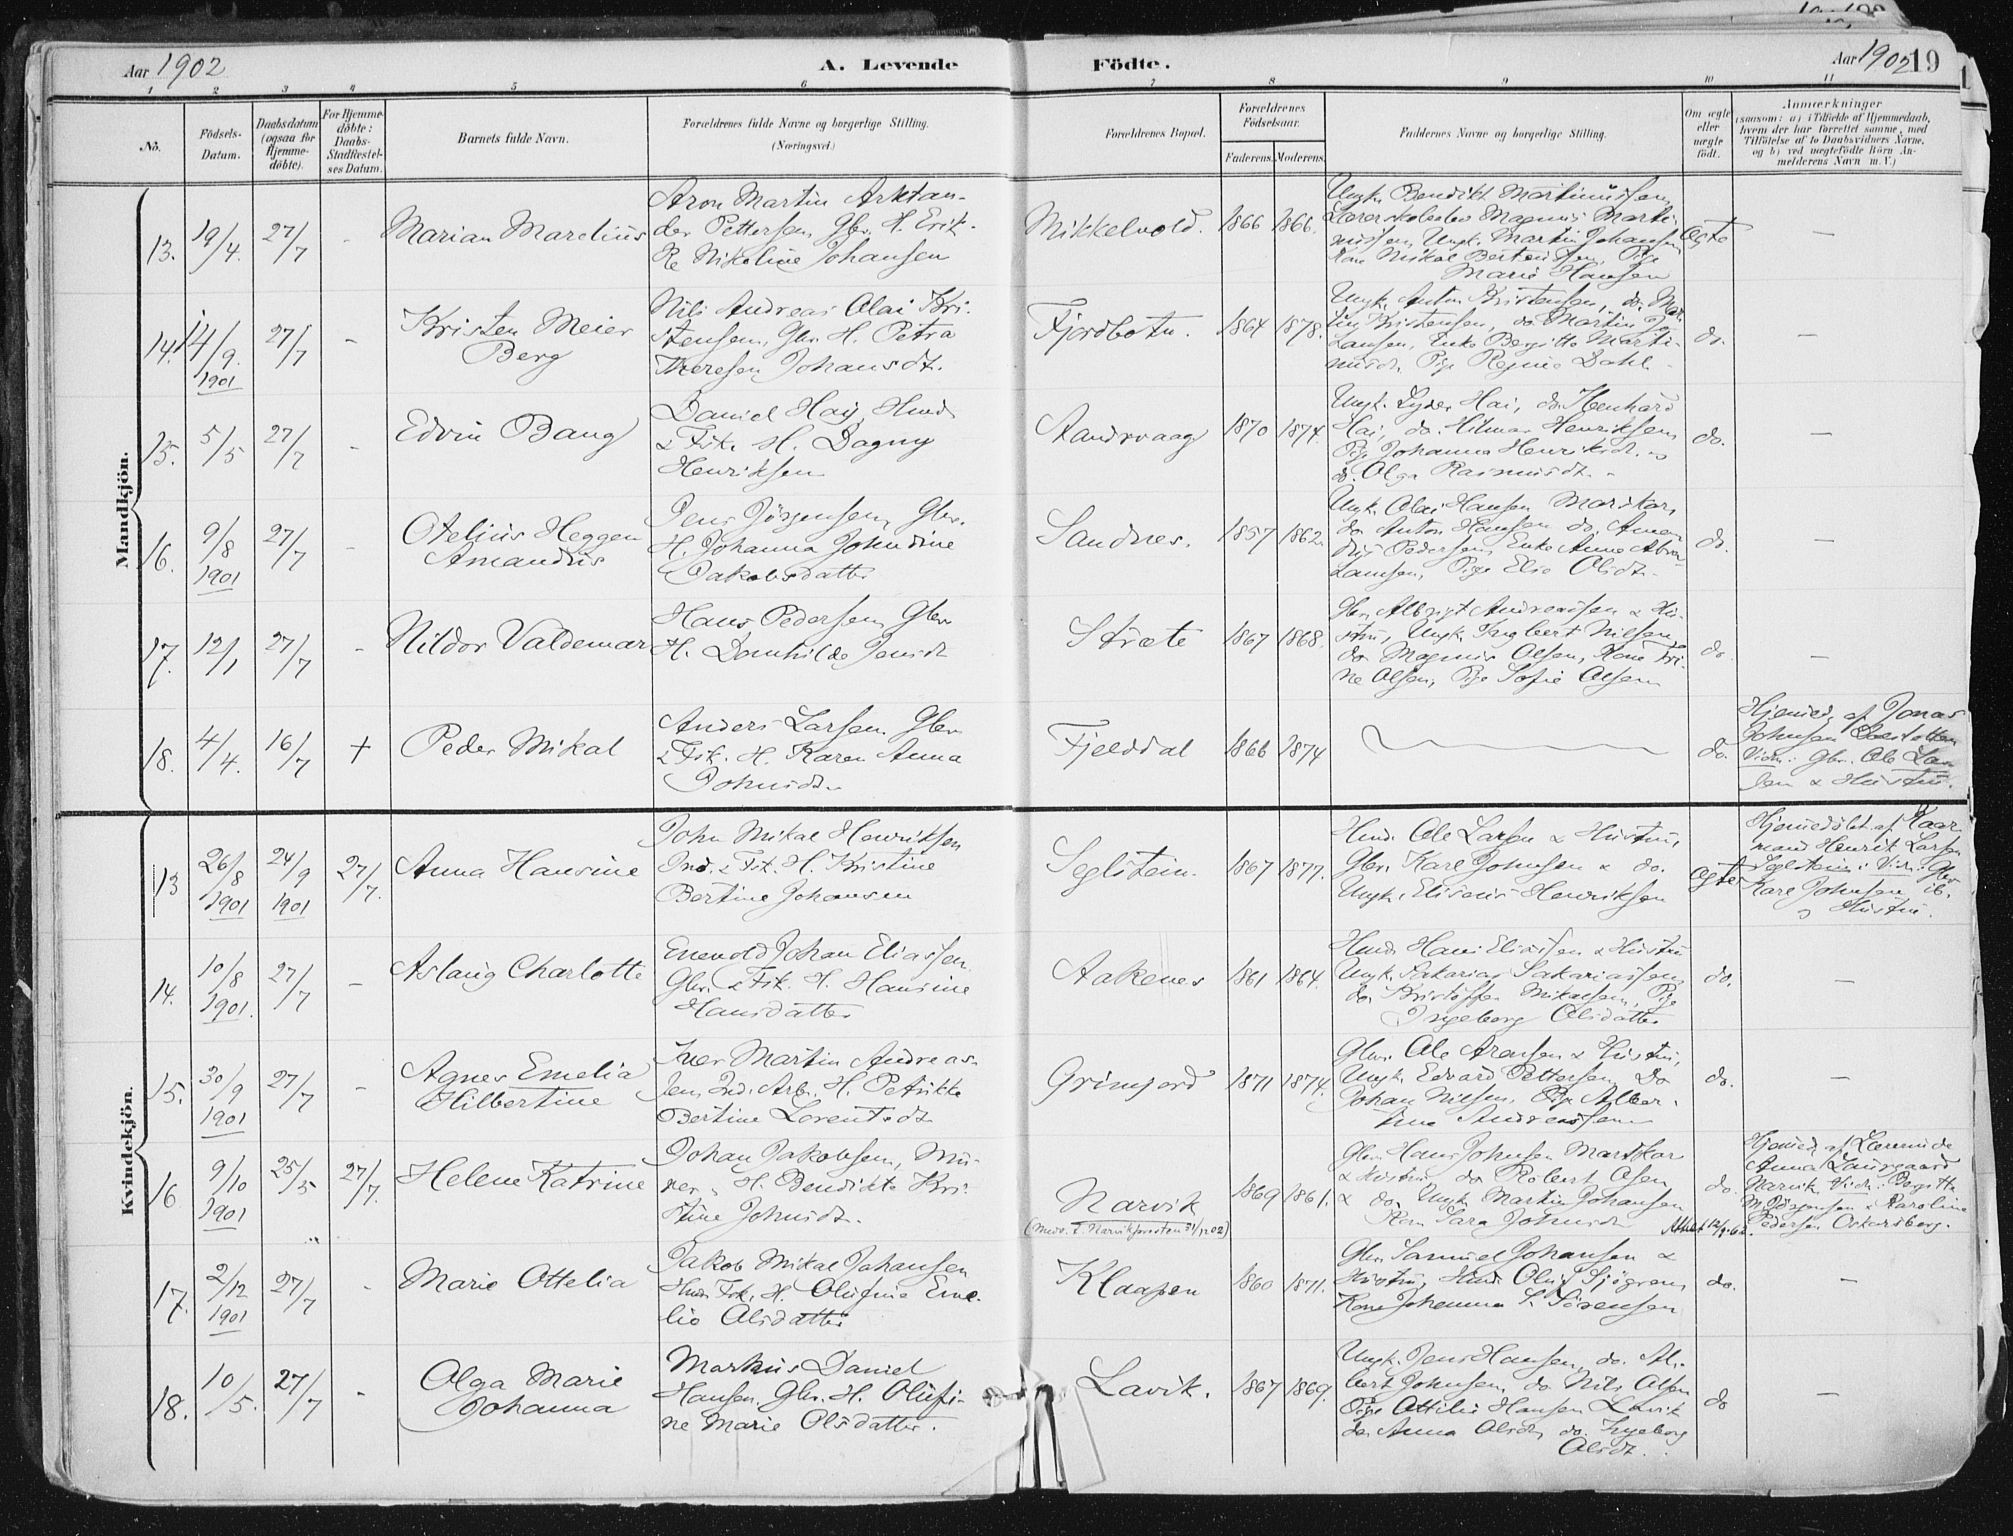 Aar 1902
A. Levende
Födte.
Aar 1902
19
1 2 3 4 5 6 7 8 9 10 11
No.
Födsels-
Datum.
Daabsdatum
(ogsaa for
Hjemme-
döbte).
For Hjemme-
döbte:
Daabs-
Stadfæstel-
ses Datum.
Barnets fulde Navn.
Forældrenes fulde Navne og borgerlige Stilling.
(Næringsvei.)
Forældrenes Bopæl.
Forældrenes
Födselsaar.
Faderens. Moderens.
Faddernes Navne og borgerlige Stilling.
Om ægte
eller
uægte
födt.
Anmærkninger
(saasom: a) i Tilfælde af Hjemmedaab,
hvem der har forrettet samme, med
Tilföielse af to Daabsvidners Navne,
og b) ved uægtefödte Börn An-
melderens Navn m. V.)
Mandkjön.
13. 19/4. 27/7 - Marian Marelius
Aron Martin Arktan-
der Pettersen, Gbr. H. Erik-
Re Nikoline Johansen
Mikkelvold. 1866 1866.
Ungk. Bendikt Martinussen,
Magnus Marti-
nussen, Ungk. Martin Johansen
Kone Mikal Berteussen, Pige
Marie Hansen
ægte —
14. 14/9. 1901 27/7 - Kristen Meier
Berg
Nils Andreas Olai Kri-
stensen, Gbr. H. Petra
Theresen Johansdt.
Fjordbotn. 1864 1878.
Ungk. Anton Kristensen, do. Mar-
tin Kristensen, do. Martin Jo-
hansen, Enke Bergitte Marti-
nusdt. Pige Regine Dahl
do. —
15. 5/5 27/7 - Edvin Bang
Daniel Haij, Husm.
& Fisk. H. Dagny
Henriksen
Aandvaag 1870 1874.
Ungk. Lyder Hai, do.
Hai, do. Hilmar Henriksen,
Pige Johanna Henriksdt. og
do. Olga Rasmusdt.
do. —
16. 9/8 1901 27/7 - Otelius Heggen
Amandus
Jens Jörgensen, Gbr.
H. Johanna Johndine
Jakobsdatter
Sandnes. 1857 1862.
Ungk. Olai Hansen
do. Anton Hansen do. Aman-
dus Pedersen, Enke Anne Abra-
hamsen, Pige Elie Olsdt.
do. —
17. 12/1 27/7 - Nildor Valdemar
Hans Pedersen, Gbr
H. Domhilde Jensdt
Stræte 1867 1868.
Gbr. Albrigt Andreassen & Hu-
stru, Ungk. Ingbert Nilsen
do. Magnus Olsen, Kone Tri-
ne Olsen, Pige Sofie Olsen
do. —
18. 4/4. 16/7 + Peder Mikal
Anders Larsen Gbr
& Fisk. H. Karen Anna
Johnsdt.
Fjelddal 1866 1874
do.
Hjemmed. af Jonas
Johnsen
Vidn: Gbr. Ole Lar-
sen & Hustru.
Kvindekjön.
13 26/8 1901 24/9 1901 27/7. Anna Hansine
John Mikal Henriksen
Ind. & Fisk. H. Kristine
Bertine Johansen
Seglstein. 1867 1877.
Husm. Ole Larsen & Hustru,
Gbr. Karl Johnsen & do.
Ungk. Elisæus Henriksen
ægte
Hjemmedöbt af Kaar-
mand Henrik Larsen
Seglstein: Vidn: Gbr
Karl Johnsen ib.
og Hustru.
14. 10/8 1901. 27/7 - Aslaug Charlotte
Enevold Johan Eliassen
Gbr. & Fisk. H. Hansine
Hansdatter
Aakenes 1861 1864.
Husm. Hans Eliassen & Hustru
Ungk. Sakarias Sakariassen,
do. Kristoffer Mikalsen, Pige
Ingeborg Olsdatter
do. —
15. 30/9 1901 27/7 - Agnes Emelia
Hilbertine
Iver Martin Andreas-
sen, Ind. Arb. H. Petrikke
Bertine Lorentsdt
Grimjord 1871 1874.
Gbr. Ole Aronsen & Hustru,
Ungk. Edvard Pettersen, do
Johan Nilsen, Pige Alber-
tine Andreassen
do. —
16 9/10 1901 25/5 27/7. Helene Katrine
Johan Jakobsen, Mu-
rer, H. Bendikte Kri-
stine Johnsdt.
Narvik 1869 1861.
(Medd. t. Narvikpresten 31/12 02)
Gbr. Hans Johnsen
& Hustru do Robert Olsen
& do. Ungk Martin Johansen
Kone Sara Johnsdt
do.
Attest 12/9-62.
Hjemmed. af Lærerinde
Anna
Narvik Vidn: Bergitte
M. Jörgensen & Karoline
Pedersen Oskarsberg.
17. 2/12 1901 27/7 - Marie Ottelia
Jakob Mikal Johansen
Husm. Fisk. H. Olufine Eme-
lie Olsdatter
Klaapen 1860 1871.
Gbr. Samuel Johansen &
Hustru, Husm. Oluf Sjögren,
Kone Johanna S. Sörensen
do. —
18. 10/5. 27/7 - Olga Marie
Johanna
Markus Daniel
Hansen, Gbr. H. Olufi-
ne Marie Olsdatter.
Lavik. 1867 1869.
Ungk. Jens Hansen, do. Al-
bert Johnsen, do. Nils Olsen
Pige Ottilie Hansen Lavik
do. Anna Olsdt, do. Ingeborg
Olsdt.
do —